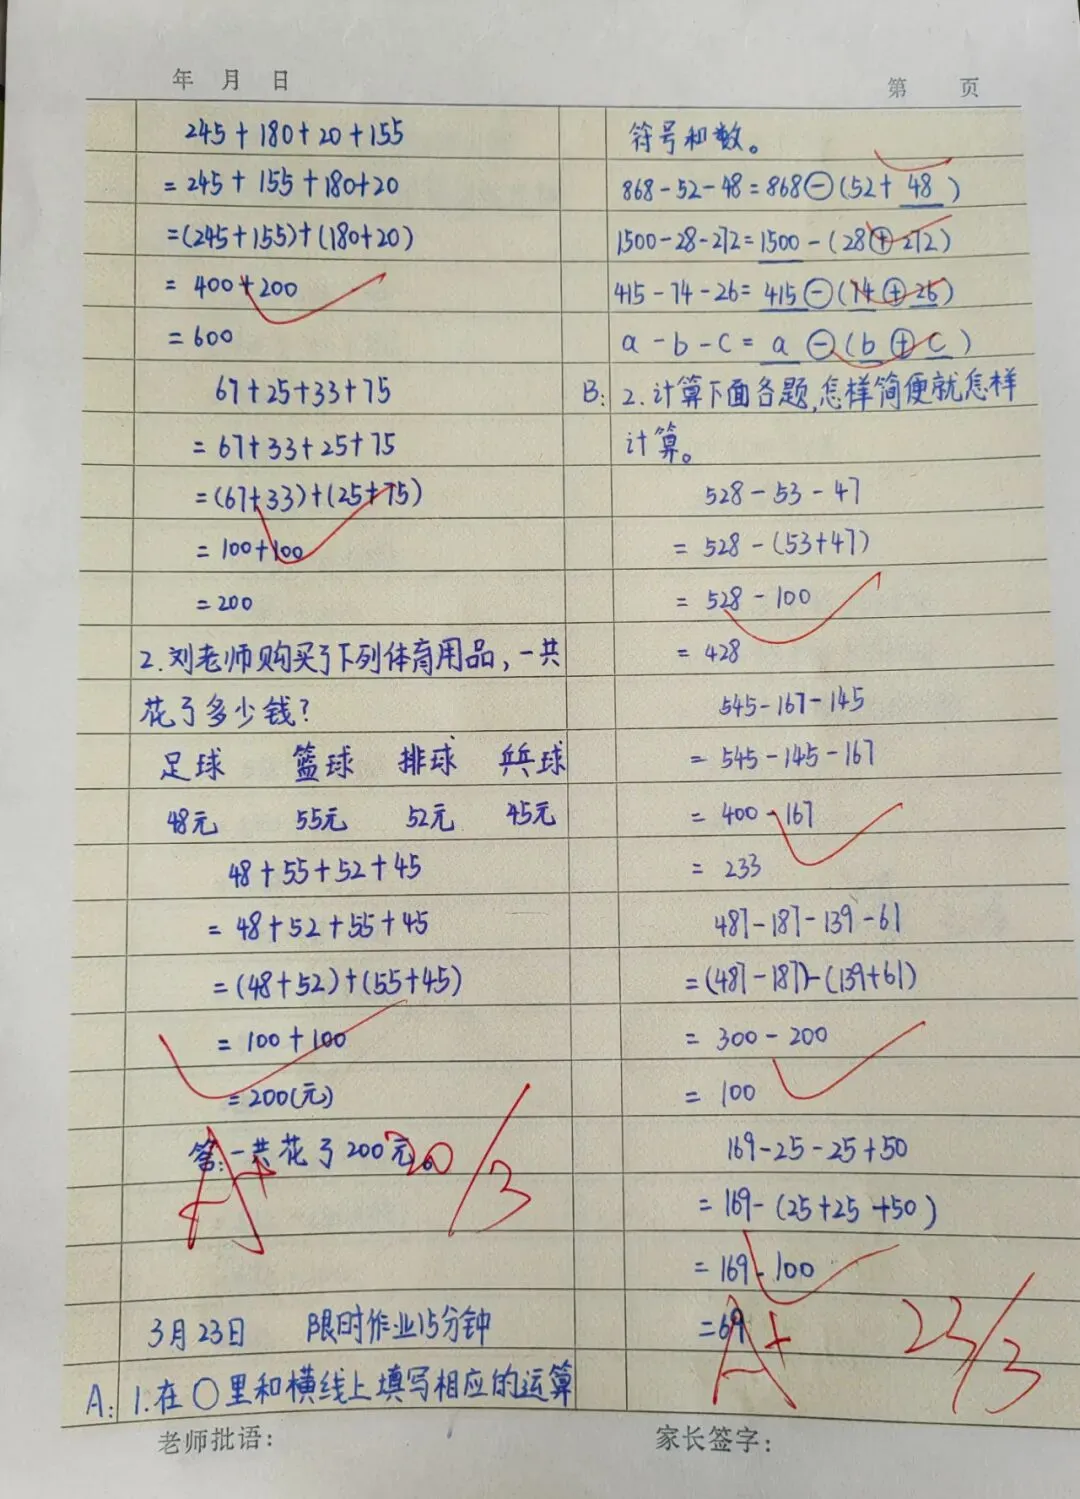 年 月 日
第 页
245+180+20+155
=245+155+180+20
=(245+155)+(180+20)
=400+200
=600
67+25+33+75
=67+33+25+75
=(67+33)+(25+75)
=100+100
=200
2.刘老师购买了下列体育用品,一共
花了多少钱?
足球 篮球 排球 乒乓球
48元 55元 52元 45元
48+55+52+45
=48+52+55+45
=(48+52)+(55+45)
=100+100
=200(元)
答:一共花了200元。
A+ 20/3
3月23日 限时作业15分钟
A: 1.在○里和横线上填写相应的运算
符号和数。
868-52-48=868⊖(52+48)
1500-28-272=1500-(28⊕272)
415-74-26=415⊖(74⊕26)
a-b-c=a⊖(b⊕c)
B: 2.计算下面各题,怎样简便就怎样
计算。
528-53-47
=528-(53+47)
=528-100
=428
545-167-145
=545-145-167
=400-167
=233
487-187-139-61
=(487-187)-(139+61)
=300-200
=100
169-25-25+50
=169-(25+25+50)
=169-100
=69
A+ 23/3
老师批语:
家长签字: